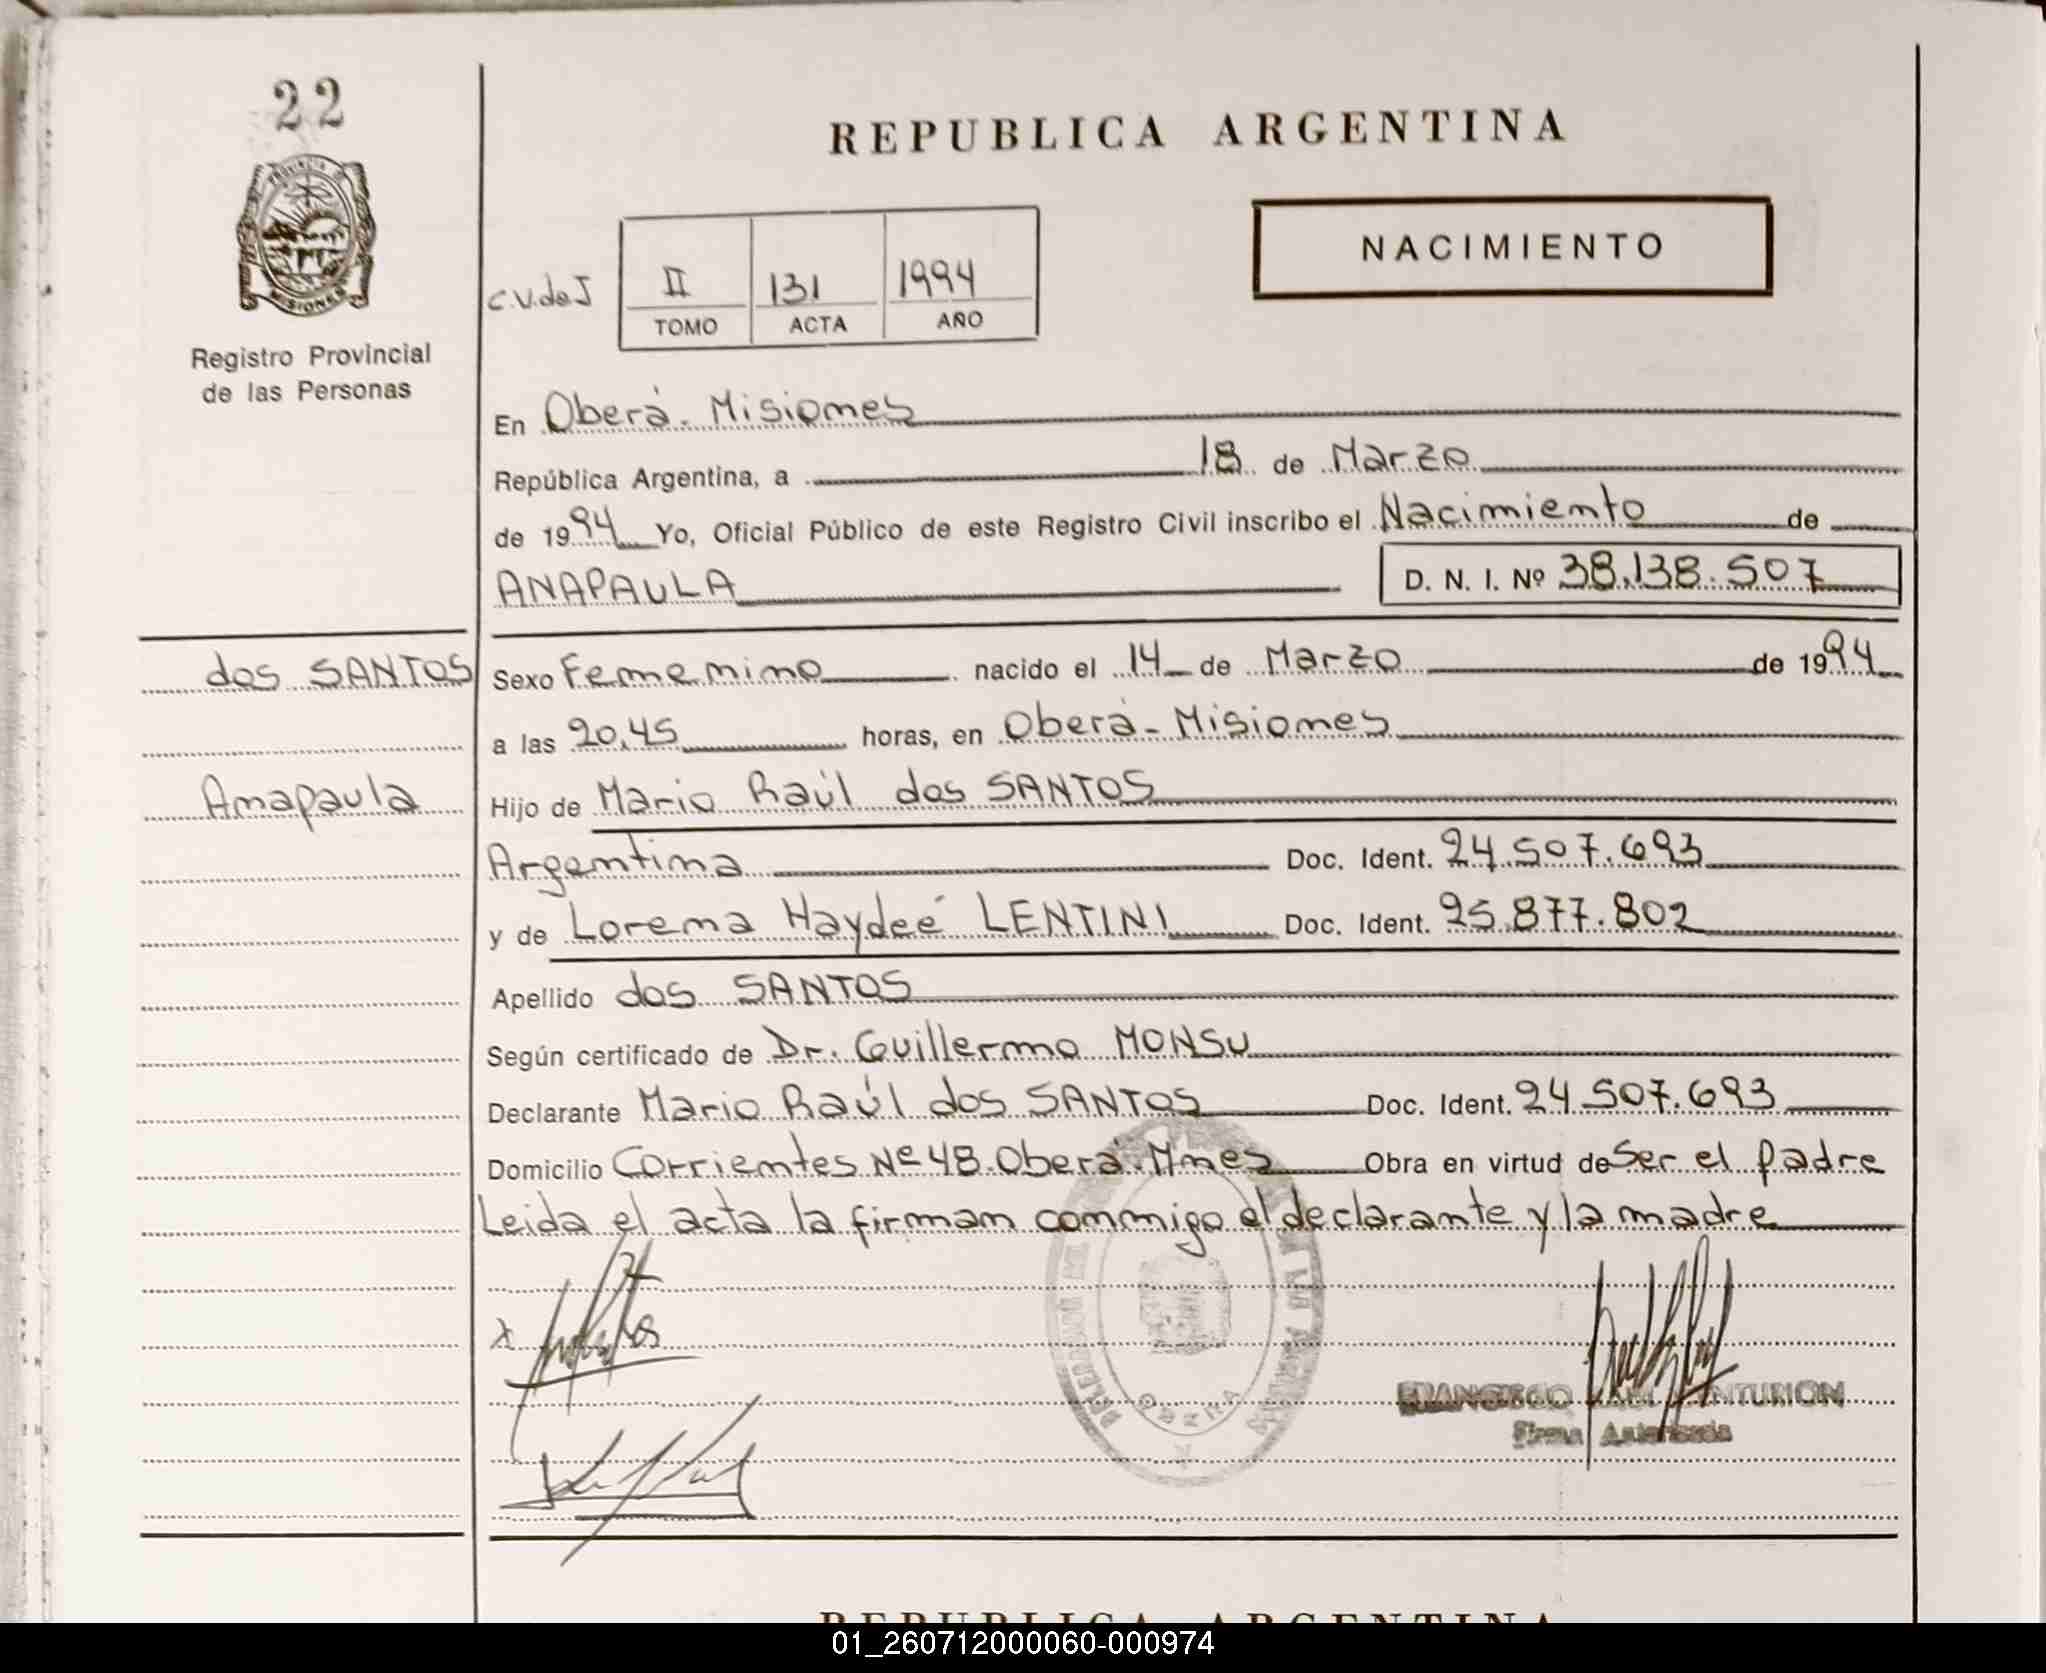 22
REPUBLICA ARGENTINA
PROVINCIA DE
MISIONES
NACIMIENTO
C.V.deJ
II 131 1994
TOMO ACTA AÑO
Registro Provincial
de las Personas
En Oberá. Misiones
República Argentina, a 18 de Marzo
de 1994 Yo, Oficial Público de este Registro Civil inscribo el Nacimiento de
ANAPAULA D. N. I. Nº 38.138.507
dos SANTOS
Anapaula
Sexo Femenino nacido el 14 de Marzo de 1994
a las 20,45 horas, en Oberá - Misiones
Hijo de Mario Raúl dos SANTOS
Argentina Doc. Ident. 24.507.693
y de Lorena Haydeé LENTINI Doc. Ident. 25.877.802
Apellido dos SANTOS
Según certificado de Dr. Guillermo MONSU
Declarante Mario Raúl dos SANTOS Doc. Ident. 24.507.693
Domicilio Corrientes Nº 48. Oberá. Mnes Obra en virtud de Ser el padre
Leida el acta la firman conmigo el declarante y la madre
X
FRANCISCO
Firma Autorizada
OBERA
REPUBLICA ARGENTINA
01_260712000060-000974